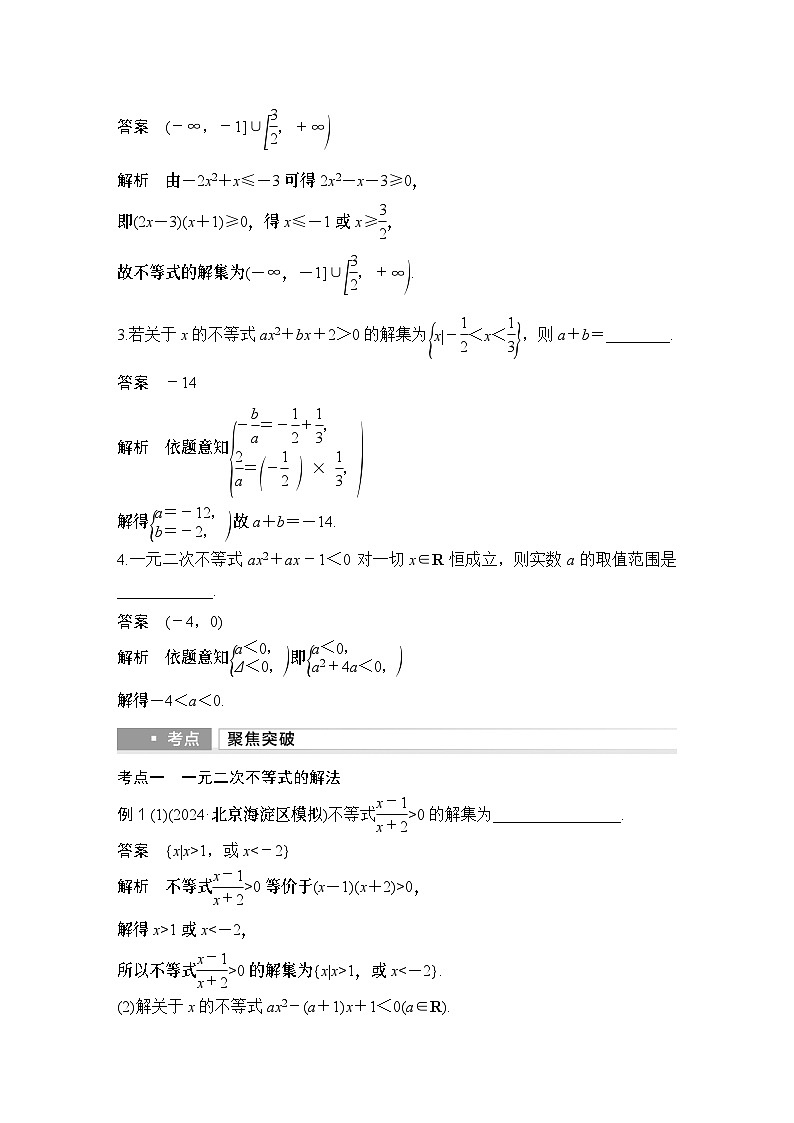 答案　(－∞，－1]∪[3/2，＋∞)
解析　由－2x²＋x≤－3可得2x²－x－3≥0，
即(2x－3)(x＋1)≥0，得x≤－1或x≥3/2，
故不等式的解集为(－∞，－1]∪[3/2，＋∞).
3.若关于x的不等式ax²＋bx＋2＞0的解集为{x|－1/2＜x＜1/3}，则a＋b＝________.
答案　－14
解析　依题意知{－b/a＝－1/2＋1/3，
2/a＝(－1/2)×1/3，)
解得{a＝－12，
b＝－2，)故a＋b＝－14.
4.一元二次不等式ax²＋ax－1＜0对一切x∈R恒成立，则实数a的取值范围是
____________.
答案　(－4，0)
解析　依题意知{a＜0，Δ＜0，)即{a＜0，a²＋4a＜0，)
解得－4＜a＜0.
考点　聚焦突破
考点一　一元二次不等式的解法
例1 (1)(2024·北京海淀区模拟)不等式(x－1)/(x＋2)>0的解集为________________.
答案　{x|x>1，或x<－2}
解析　不等式(x－1)/(x＋2)>0等价于(x－1)(x＋2)>0，
解得x>1或x<－2，
所以不等式(x－1)/(x＋2)>0的解集为{x|x>1，或x<－2}.
(2)解关于x的不等式ax²－(a＋1)x＋1＜0(a∈R).